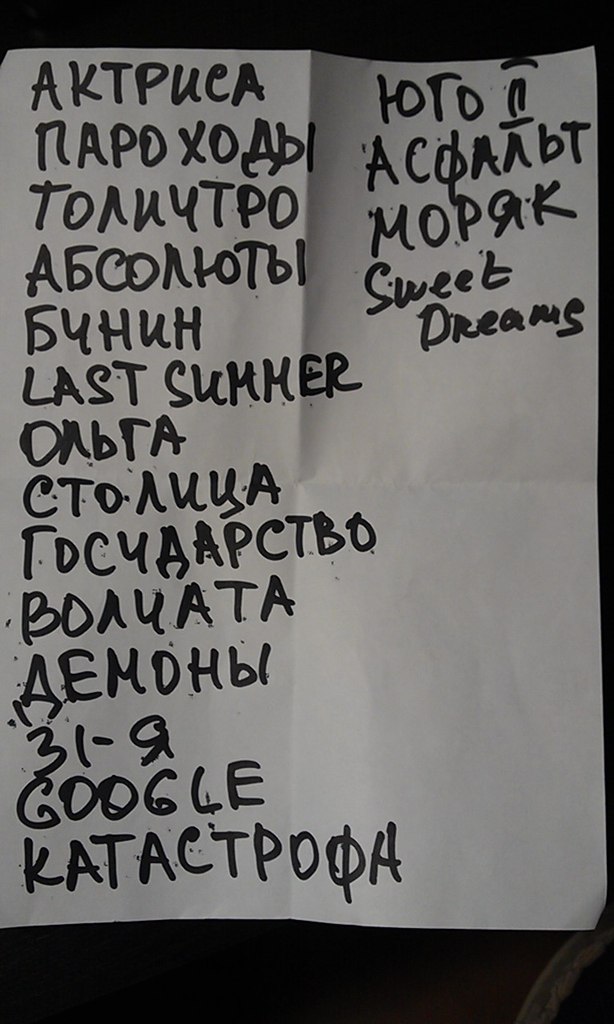 АКТРИСА
ПАРОХОДЫ
ТОЛИЧТРО
АБСОЛЮТЫ
БУНИН
LAST SUMMER
ОЛЬГА
СТОЛИЦА
ГОСУДАРСТВО
ВОЛЧАТА
ДЕМОНЫ
31-Я
GOOGLE
КАТАСТРОФА
ЮГО II
АСФАЛЬТ
МОРЯК
Sweet
Dreams